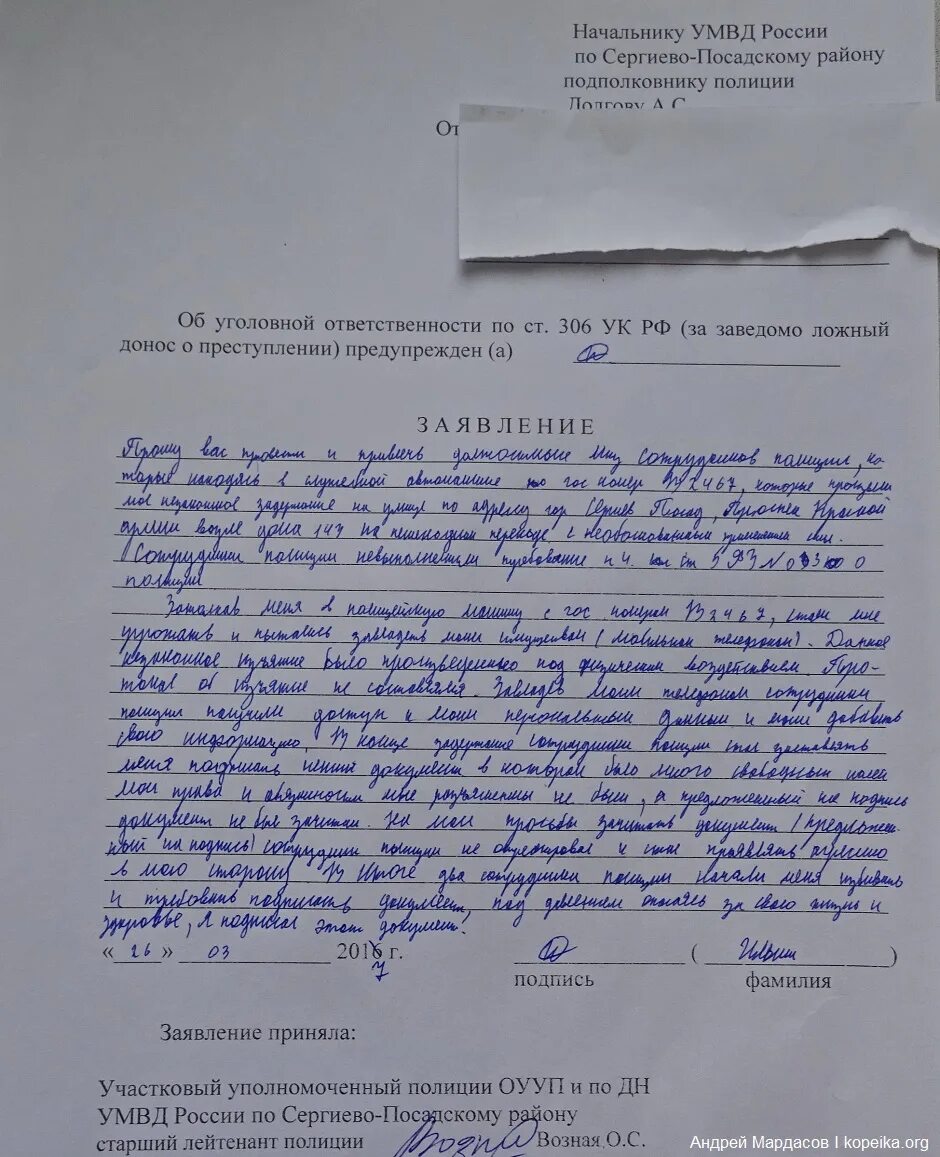 Начальнику УМВД России
по Сергиево-Посадскому району
подполковнику полиции
Долгову А.С.
От
Об уголовной ответственности по ст. 306 УК РФ (за заведомо ложный
донос о преступлении) предупрежден (а)
ЗАЯВЛЕНИЕ
Прошу вас провести и привлечь сотрудников полиции, ко-
торые в служебной гос номер В2467, которые
мое незаконное задержание на улице по адресу гор Сергиев Посад, Проспек Красной
армии возле дома 143 на пешеходном переходе с
Сотрудники полиции требование п 4. ст 5 ФЗ №
полиции
Затолкав меня в полицейскую машину с гос. номером В2467, стали мне
угрожать и пытались завладеть моим имуществом (мобильном телефоном). Данное
незаконное изъятие было произведенно под физическим воздействием. Про-
токол об изъятие не составлялся. Завладев моим телефоном сотрудники
полиции получили доступ к моим персональным данным и могли добавить
свою информацию. В конце задержание сотрудники полиции стали заставлять
меня подписать документ в котором было много свободных полей
мои права и обязанности мне разъяснены не были, а предложенный на подпись
документ не был зачитан. На мои просьбы зачитать документ (предложен-
ный на подпись) сотрудники полиции не и стали проявлять
в мою сторону. В итоге два сотрудники полиции начали меня избивать
и требовать подписать документ, под давлением опасаясь за свою жизнь и
здоровье, я подписал этот документ.
« 26 » 03 2016 г.
7
( Ильин )
подпись фамилия
Заявление приняла:
Участковый уполномоченный полиции ОУУП и по ДН
УМВД России по Сергиево-Посадскому району
старший лейтенант полиции Возная О.С.
Андрей Мардасов I kopeika.org